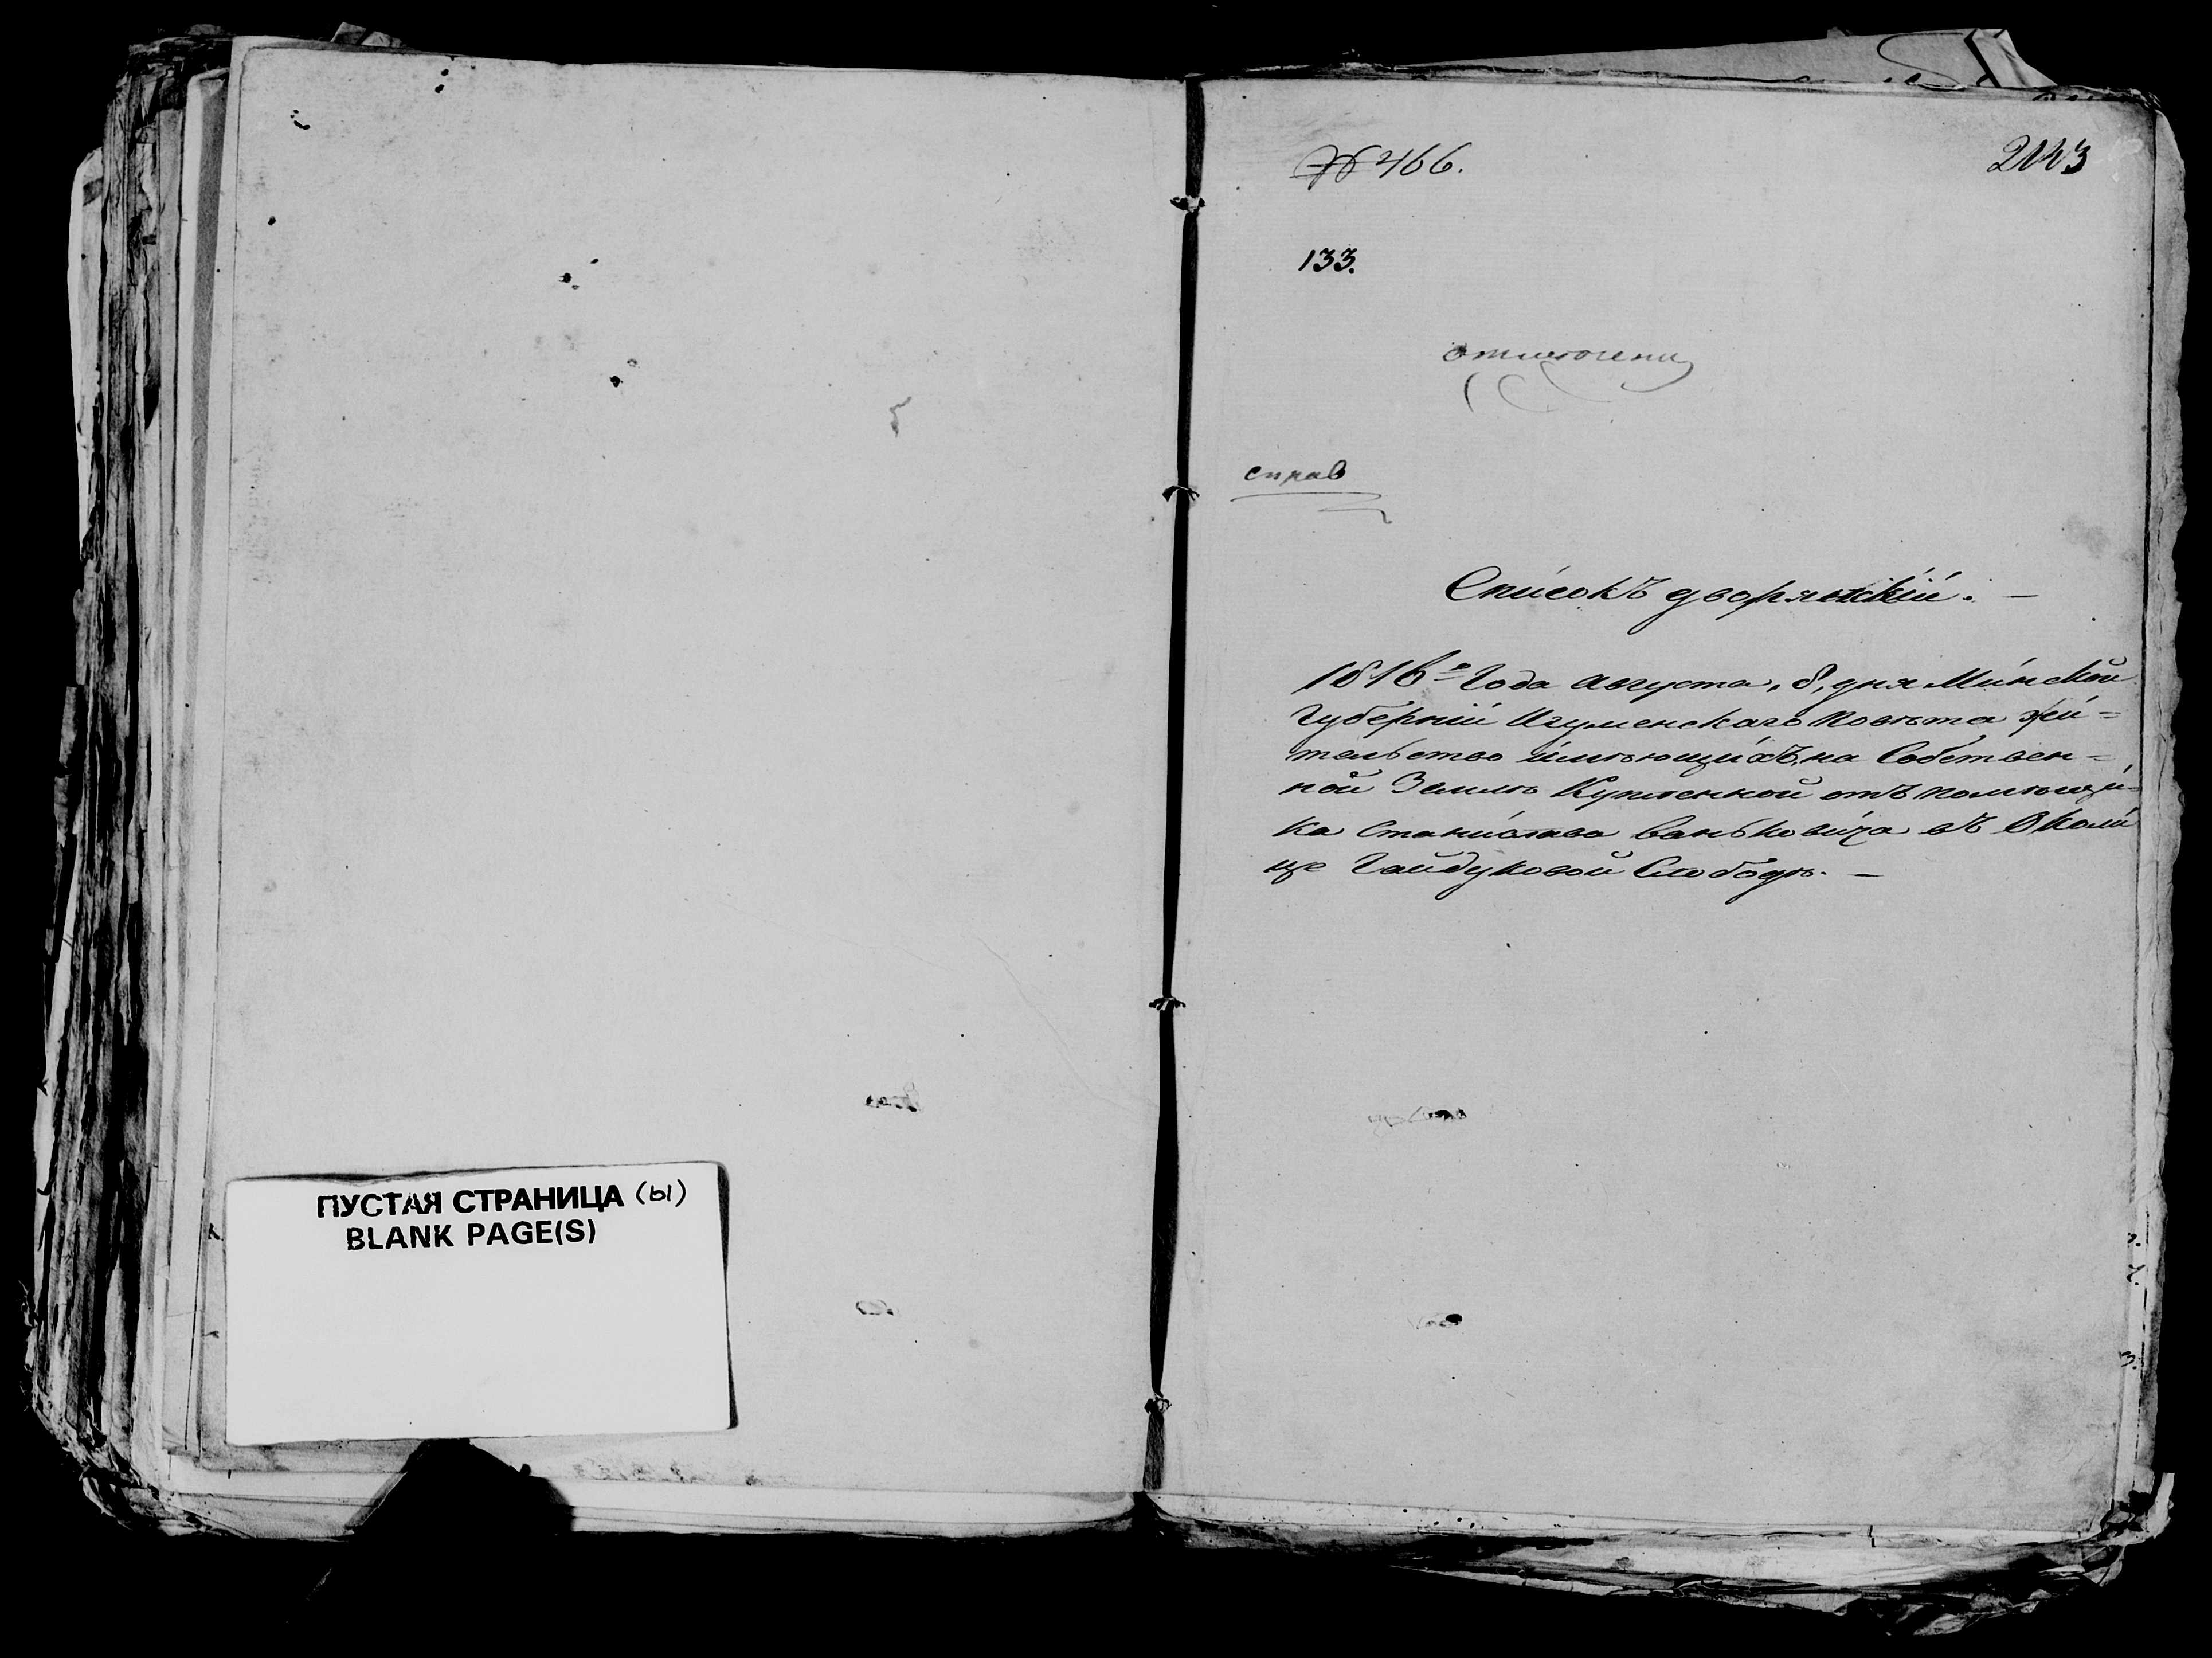 ПУСТАЯ СТРАНИЦА (Ы)
BLANK PAGE(S)
№ 466.
133.
справ
Списокъ дворянскій. —
1816го Года августа, 8, дня Минской
Губерніи Игуменскаго Повѣта жи=
тельство имѣющихъ, на Собствен=
ной Землѣ Купленной отъ помѣщи=
ка Станислава Ваньковича въ Околи
це Гайдуковой Слободѣ. —